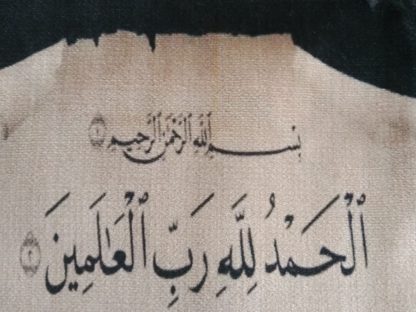 بِسْمِ ٱللَّهِ ٱلرَّحْمَٰنِ ٱلرَّحِيمِ ١
ٱلْحَمْدُ لِلَّهِ رَبِّ ٱلْعَٰلَمِينَ ٢